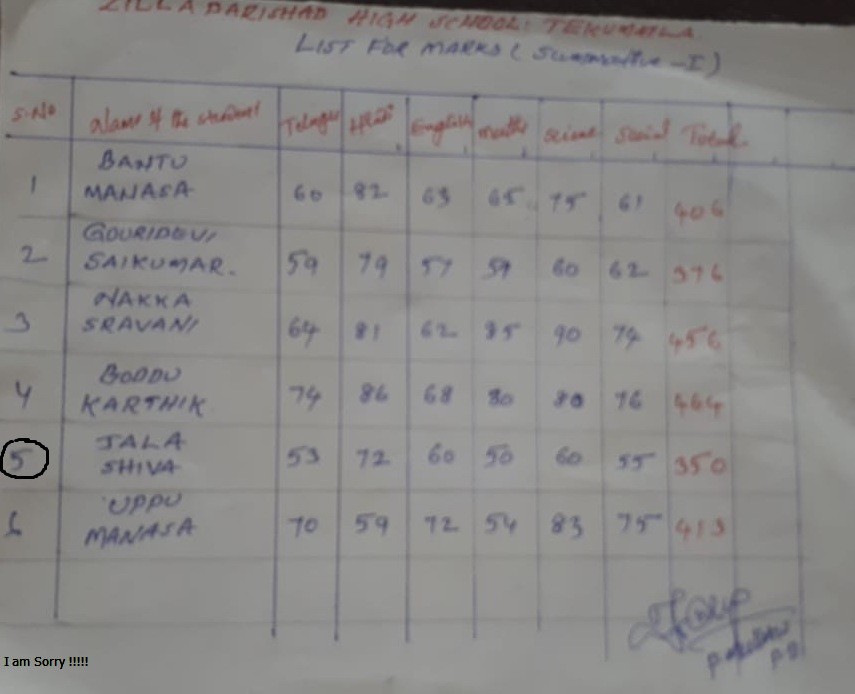 ZILLA PARISHAD HIGH SCHOOL: TEKUMATLA
LIST FOR MARKS (Summative - I)
S.No Name of the student Telugu Hindi English maths science social Total
1 BANTU
MANASA 60 82 63 65 75 61 406
2 GOURIDEVI
SAIKUMAR. 59 79 57 59 60 62 376
3 NAKKA
SRAVANI 64 81 62 85 90 74 456
4 BODDU
KARTHIK 74 86 68 80 80 76 464
5 JALA
SHIVA 53 72 60 50 60 55 350
6 UPPU
MANASA 70 59 72 54 83 75 413
I am Sorry !!!!!